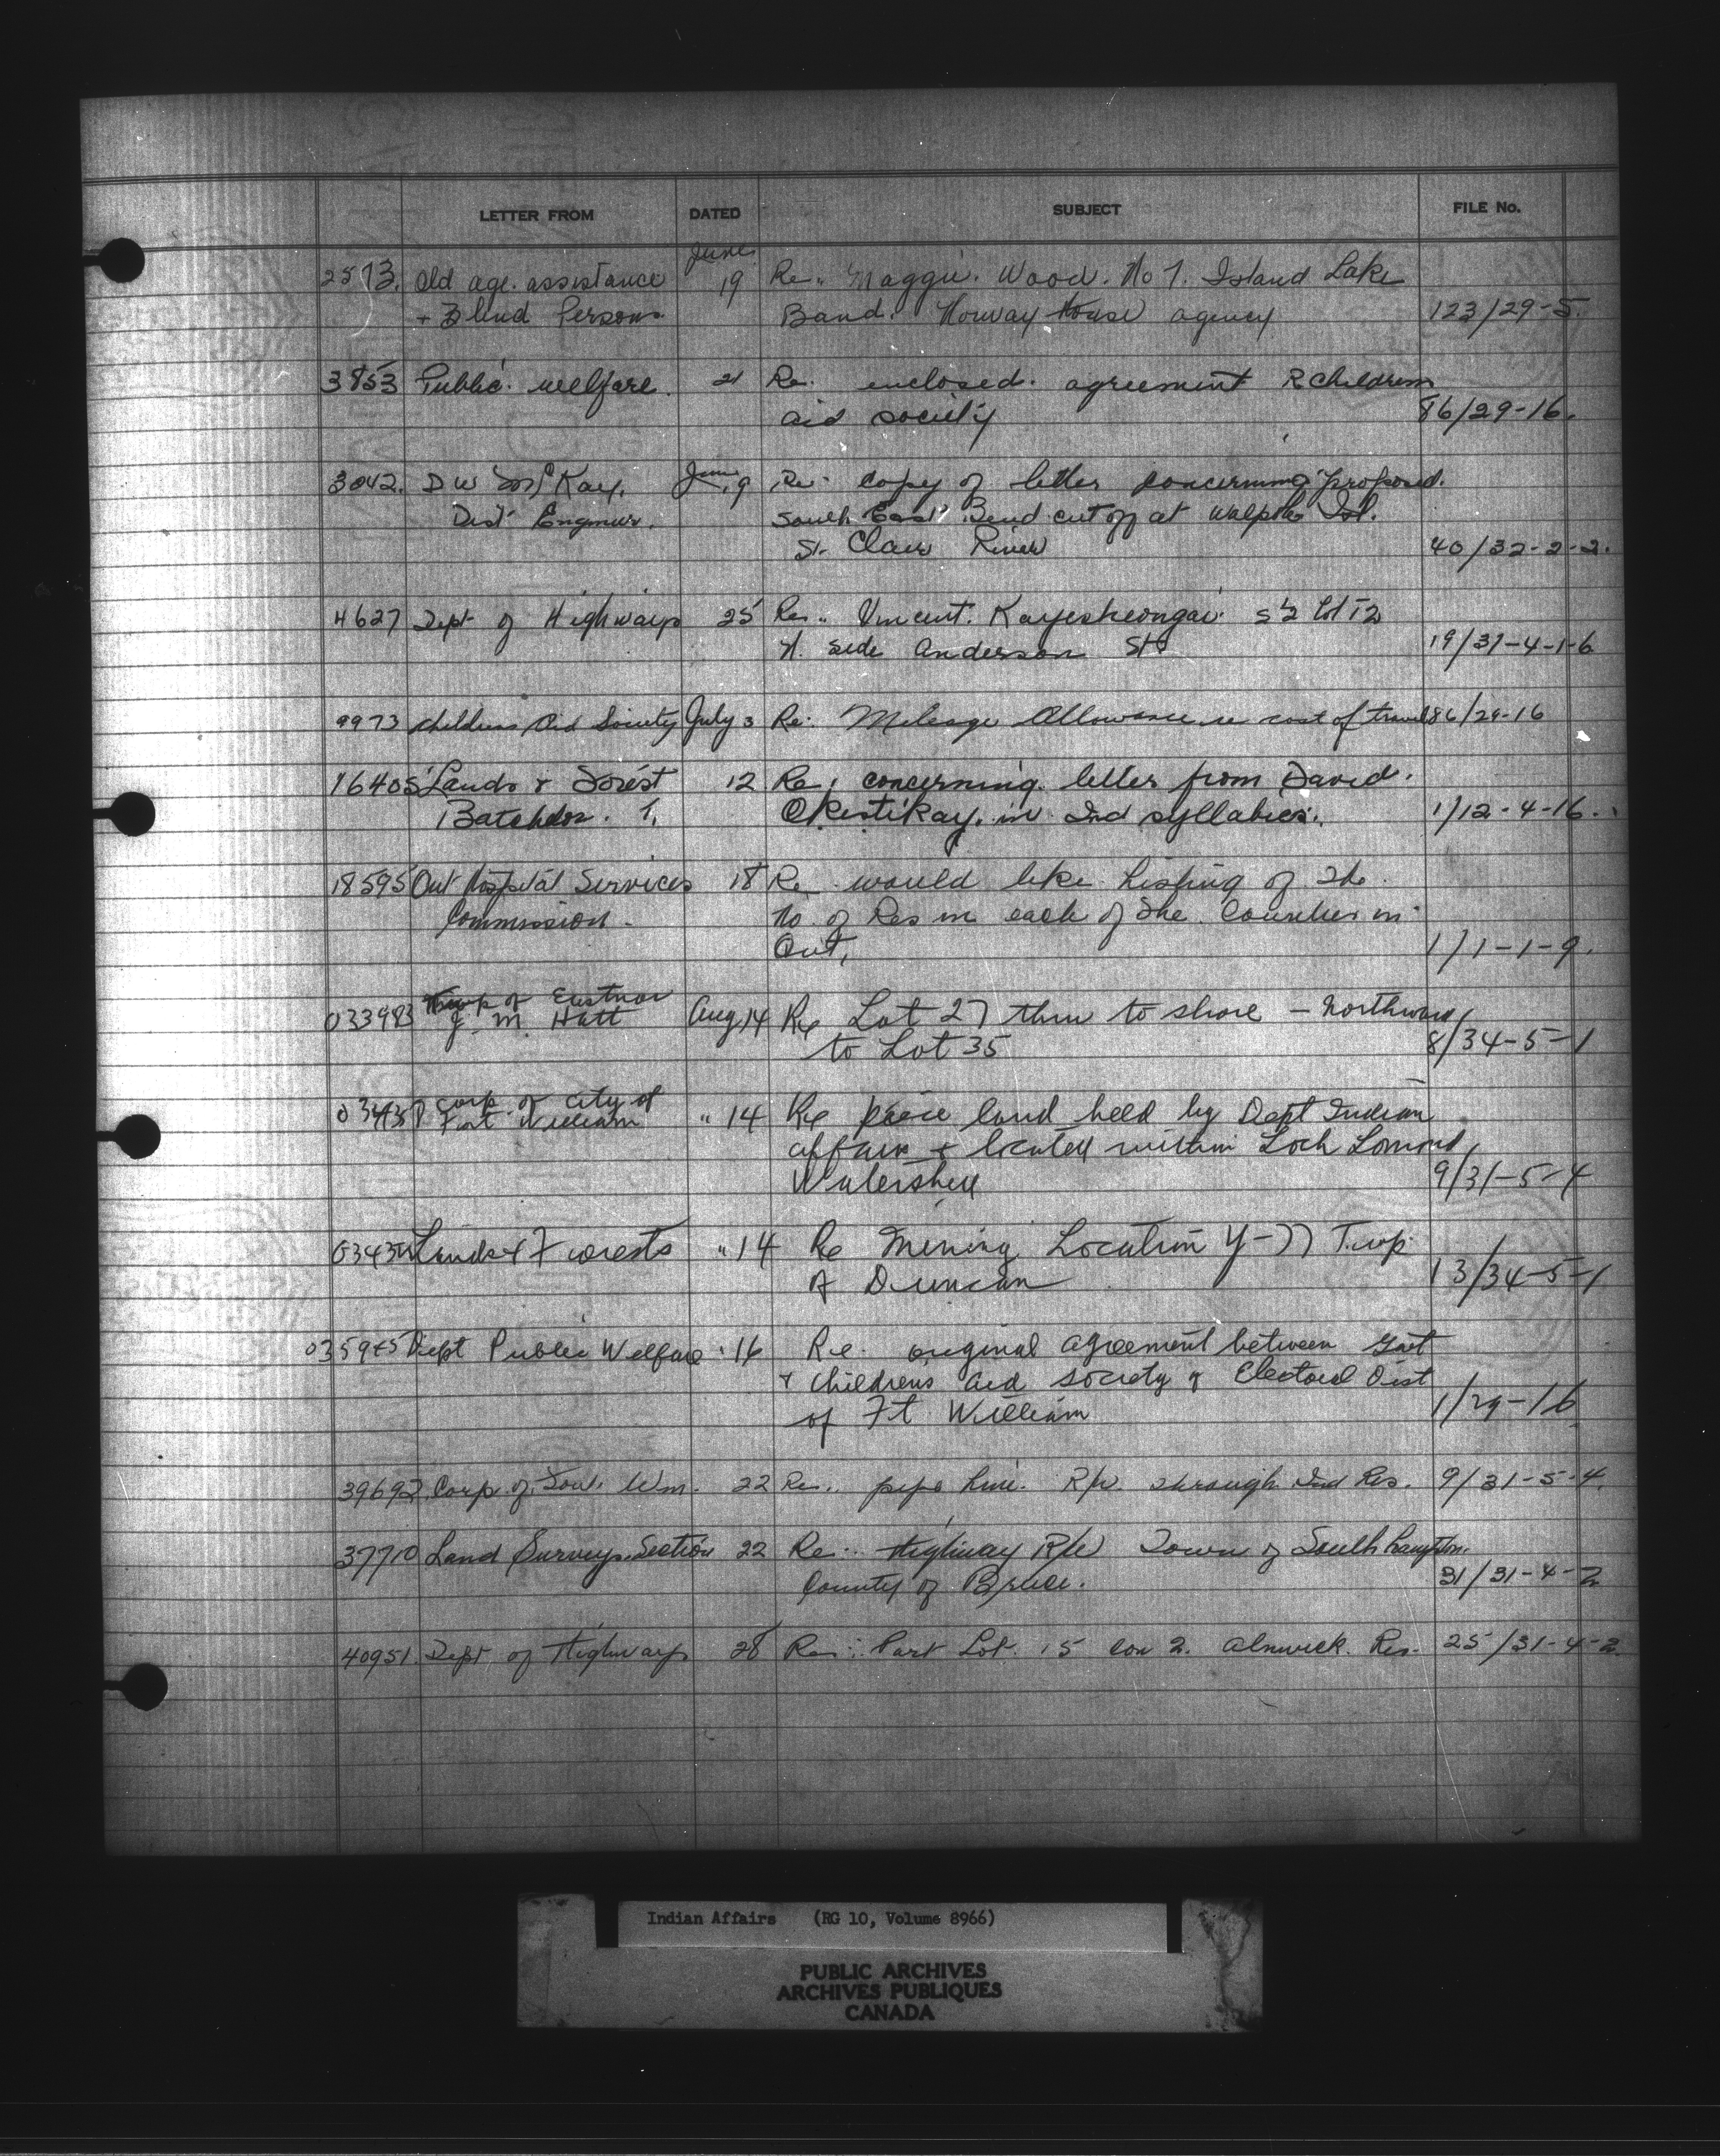 LETTER FROM DATED SUBJECT FILE No.
2573. Old age. assistance June 19 Re.. Maggie. Wood. No 7. Island Lake
+ Blind Persons. Band. Norway House agency 123/29-5.
3853 Public. welfare. 21 Re. enclosed. agreement R childrens
aid society 86/29-16.
3042. D W McKay. June 19 Re. copy of letter concerning proposed.
Dist Engineer. South East Bend cut off at Walpole Isl.
St. Clair River 40/32-2-2.
4627 Dept of Highways 25 Re.. Vincent. S½ Lot 12
N. side Anderson St. 19/31-4-1-6
9973 Childrens Aid Society July 3 Re: Mileage Allowance re cost of travel 86/29-16
16405 Lands & Forest 12 Re, concerning letter from David.
Batchelor. T. Okestikay. in Ind syllabics. 1/12-4-16.
18595 Ont Hospital Services 18 Re would like listing of the
Commission - No. of Res in each of the Counties in
Ont, 1/1-1-9.
Twp of Eastnor
033983 J. M. Hatt Aug 14 Re Lot 27 thru to shore - northward
to Lot 35 8/34-5-1
Corp. of City of
Fort William " 14 Re piece land held by Dept Indian
affairs & located within Loch Lomond
Watershed 9/31-5-4
Lands & Forests " 14 Re Mining Location Y-77 Twp
of Duncan 13/34-5-1
035945 Dept Public Welfare " 16 Re. original agreement between Govt
& childrens aid society & Electoral Dist
of Ft William 1/29-16
39692 Corp. of Wm. 22 Re.. pipe line. R/W. through Ind Res. 9/31-5-4.
37710 Land Surveys Section 22 Re.. Highway R/W Town of Southampton.
County of Bruce. 31/31-4-2
40951. Dept of Highways 28 Re: Part Lot. 15 con 2. Alnwick. Res. 25/31-4-2.
Indian Affairs (RG 10, Volume 8966)
PUBLIC ARCHIVES
ARCHIVES PUBLIQUES
CANADA